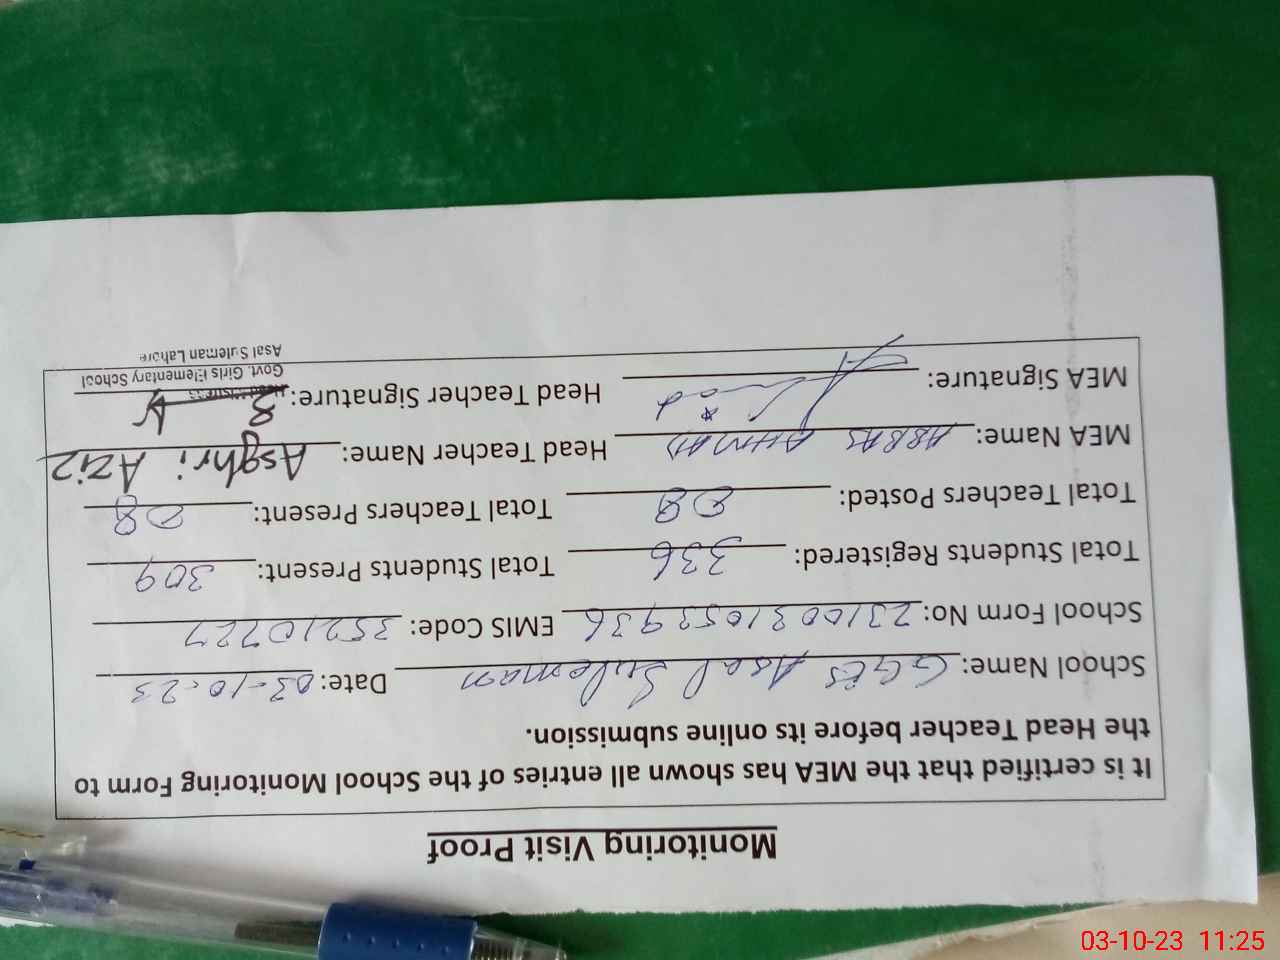 Monitoring Visit Proof
It is certified that the MEA has shown all entries of the School Monitoring Form to
the Head Teacher before its online submission.
School Name: GGES Asal Suleman Date: 03-10-23
School Form No: 231003105393 6 EMIS Code: 35210727
Total Students Registered: 336 Total Students Present: 309
Total Teachers Posted: 08 Total Teachers Present: 08
MEA Name: ABBAS AHMAD Head Teacher Name: Asghri Aziz
MEA Signature: Head Teacher Signature:
Govt. Girls Elementary School
Asal Suleman Lahore
03-10-23 11:25